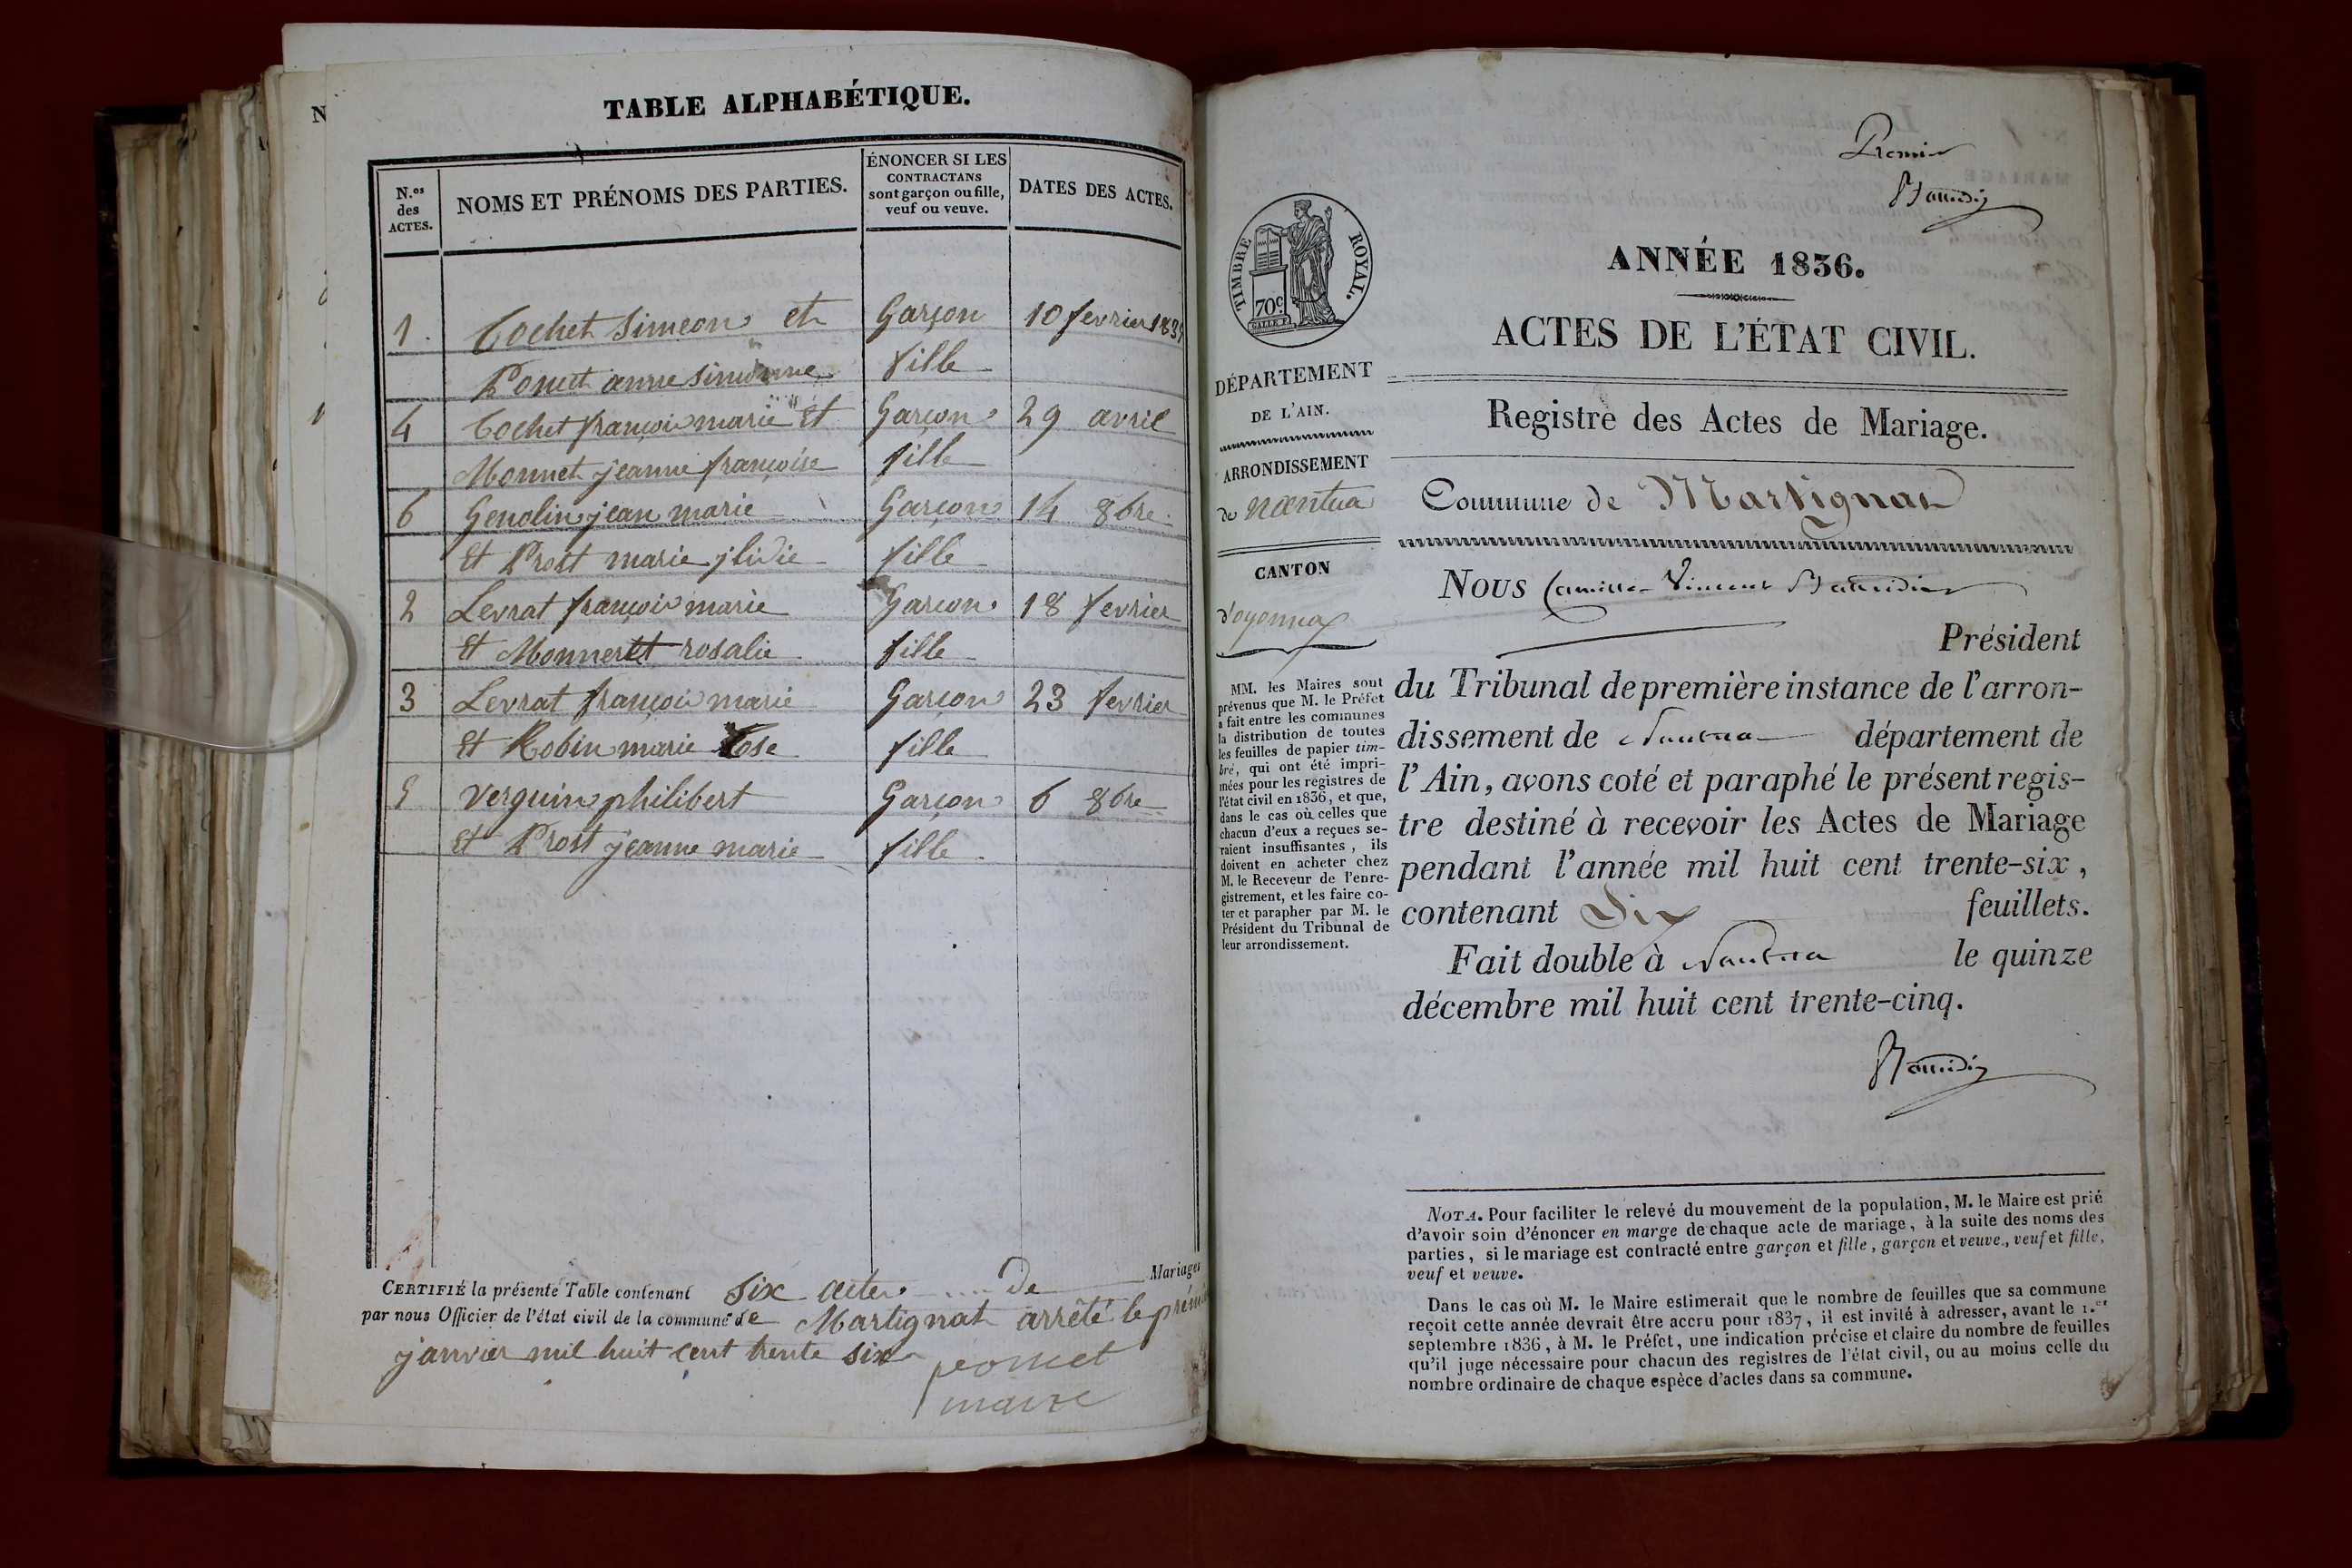 TABLE ALPHABÉTIQUE.
N.os des ACTES.
NOMS ET PRÉNOMS DES PARTIES.
ÉNONCER SI LES CONTRACTANS sont garçon ou fille, veuf ou veuve.
DATES DES ACTES.
1. Cochet Simeon et Garçon 10 fevrier 1835
Ponnet anne simonne fille
4 Cochet françois marie Et Garçon 29 avril
Monnet jeanne françoise fille
6 Genolin jean marie Garçon 14 8bre
Et Prost marie jlidie fille
2 Levrat françois marie Garçon 18 fevrier
Et Monnerett rosalie fille
3 Levrat françois marie Garçon 23 fevrier
Et Robin marie Rose fille
5 Verguin philibert Garçon 6 8bre
Et Prost jeanne marie fille
CERTIFIÉ la présente Table contenant six actes de Mariages
par nous Officier de l'état civil de la commune de Martignat arrêté le prémier
janvier mil huit cent trente six
maire
Premier
ANNÉE 1836.
ACTES DE L'ÉTAT CIVIL.
TIMBRE ROYAL.
70c
DÉPARTEMENT
DE L'AIN.
ARRONDISSEMENT
de nantua
CANTON
d'oyonnax
MM. les Maires sont
prévenus que M. le Préfet
a fait entre les communes
la distribution de toutes
les feuilles de papier tim-
bré, qui ont été impri-
mées pour les registres de
l'état civil en 1836, et que,
dans le cas où celles que
chacun d'eux a reçues se-
raient insuffisantes, ils
doivent en acheter chez
M. le Receveur de l'enre-
gistrement, et les faire co-
ter et parapher par M. le
Président du Tribunal de
leur arrondissement.
Registre des Actes de Mariage.
Commune de Martignat
NOUS Camille Vincent
Président
du Tribunal de première instance de l'arron-
dissement de Nantua département de
l'Ain, avons coté et paraphé le présent regis-
tre destiné à recevoir les Actes de Mariage
pendant l'année mil huit cent trente-six,
contenant Dix feuillets.
Fait double à Nantua le quinze
décembre mil huit cent trente-cinq.
NOTA. Pour faciliter le relevé du mouvement de la population, M. le Maire est prié
d'avoir soin d'énoncer en marge de chaque acte de mariage, à la suite des noms des
parties, si le mariage est contracté entre garçon et fille, garçon et veuve, veuf et fille,
veuf et veuve.
Dans le cas où M. le Maire estimerait que le nombre de feuilles que sa commune
reçoit cette année devrait être accru pour 1837, il est invité à adresser, avant le 1.er
septembre 1836, à M. le Préfet, une indication précise et claire du nombre de feuilles
qu'il juge nécessaire pour chacun des registres de l'état civil, ou au moins celle du
nombre ordinaire de chaque espèce d'actes dans sa commune.